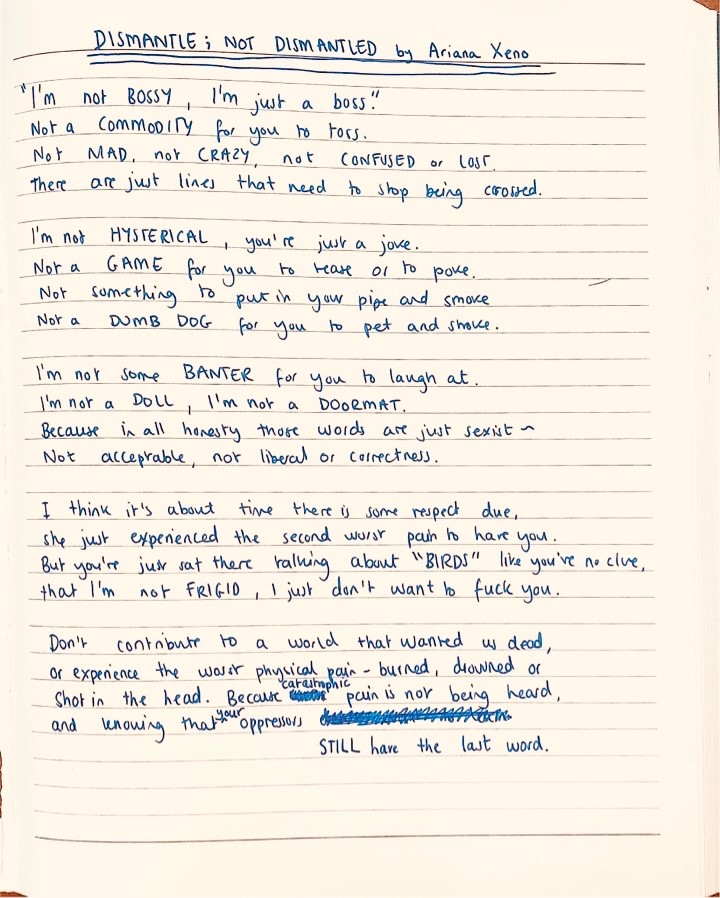 DISMANTLE; NOT DISMANTLED by Ariana Xeno
"I'm not BOSSY, I'm just a boss."
Not a COMMODITY for you to toss.
Not MAD, not CRAZY, not CONFUSED or LOST.
There are just lines that need to stop being crossed.
I'm not HYSTERICAL, you're just a joke.
Not a GAME for you to tease or to poke.
Not something to put in your pipe and smoke
Not a DUMB DOG for you to pet and stroke.
I'm not some BANTER for you to laugh at.
I'm not a DOLL, I'm not a DOORMAT.
Because in all honesty those words are just sexist ~
Not acceptable, not liberal or correctness.
I think it's about time there is some respect due,
she just experienced the second worst pain to have you.
But you're just sat there talking about "BIRDS" like you've no clue,
that I'm not FRIGID, I just don't want to fuck you.
Don't contribute to a world that wanted us dead,
or experience the worst physical pain - burned, drowned or
shot in the head. Because catastrophic pain is not being heard,
and knowing that your oppressors
STILL have the last word.